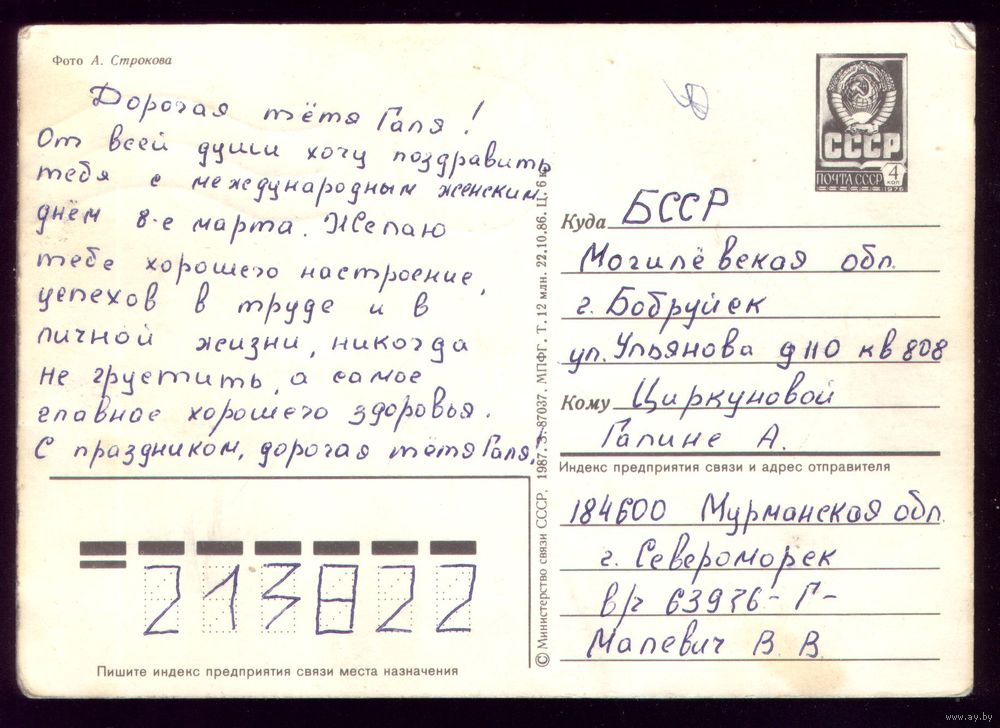 Фото А. Строкова
Дорогая тётя Галя!
От всей души хочу поздравить
тебя с международным женским
днём 8-е марта. Желаю
тебе хорошего настроение,
успехов в труде и в
личной жизни, никогда
не грустить, а самое
главное хорошего здоровья.
С праздником, дорогая тётя Галя.
СССР
ПОЧТА СССР 4 КОП
1976
Куда БССР
Могилёвская обл.
г. Бобруйск
ул. Ульянова д 110 кв 808
Кому Циркуновой
Галине А.
Индекс предприятия связи и адрес отправителя
184600 Мурманская обл.
г. Североморск
в/ч 63976-Г-
Малевич В. В.
© Министерство связи СССР, 1987. З. 87037. МПФГ. Т. 12 млн. 22.10.86. Ц. 6 к.
213822
Пишите индекс предприятия связи места назначения
www.ay.by